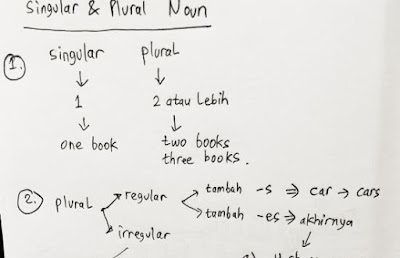 Singular & Plural Noun
1. singular plural
↓ ↓
1 2 atau Lebih
↓ ↓
one book two books
three books.
2. plural → regular → tambah -s ⇒ car → cars
→ tambah -es ⇒ akhirnya
→ irregular ↓